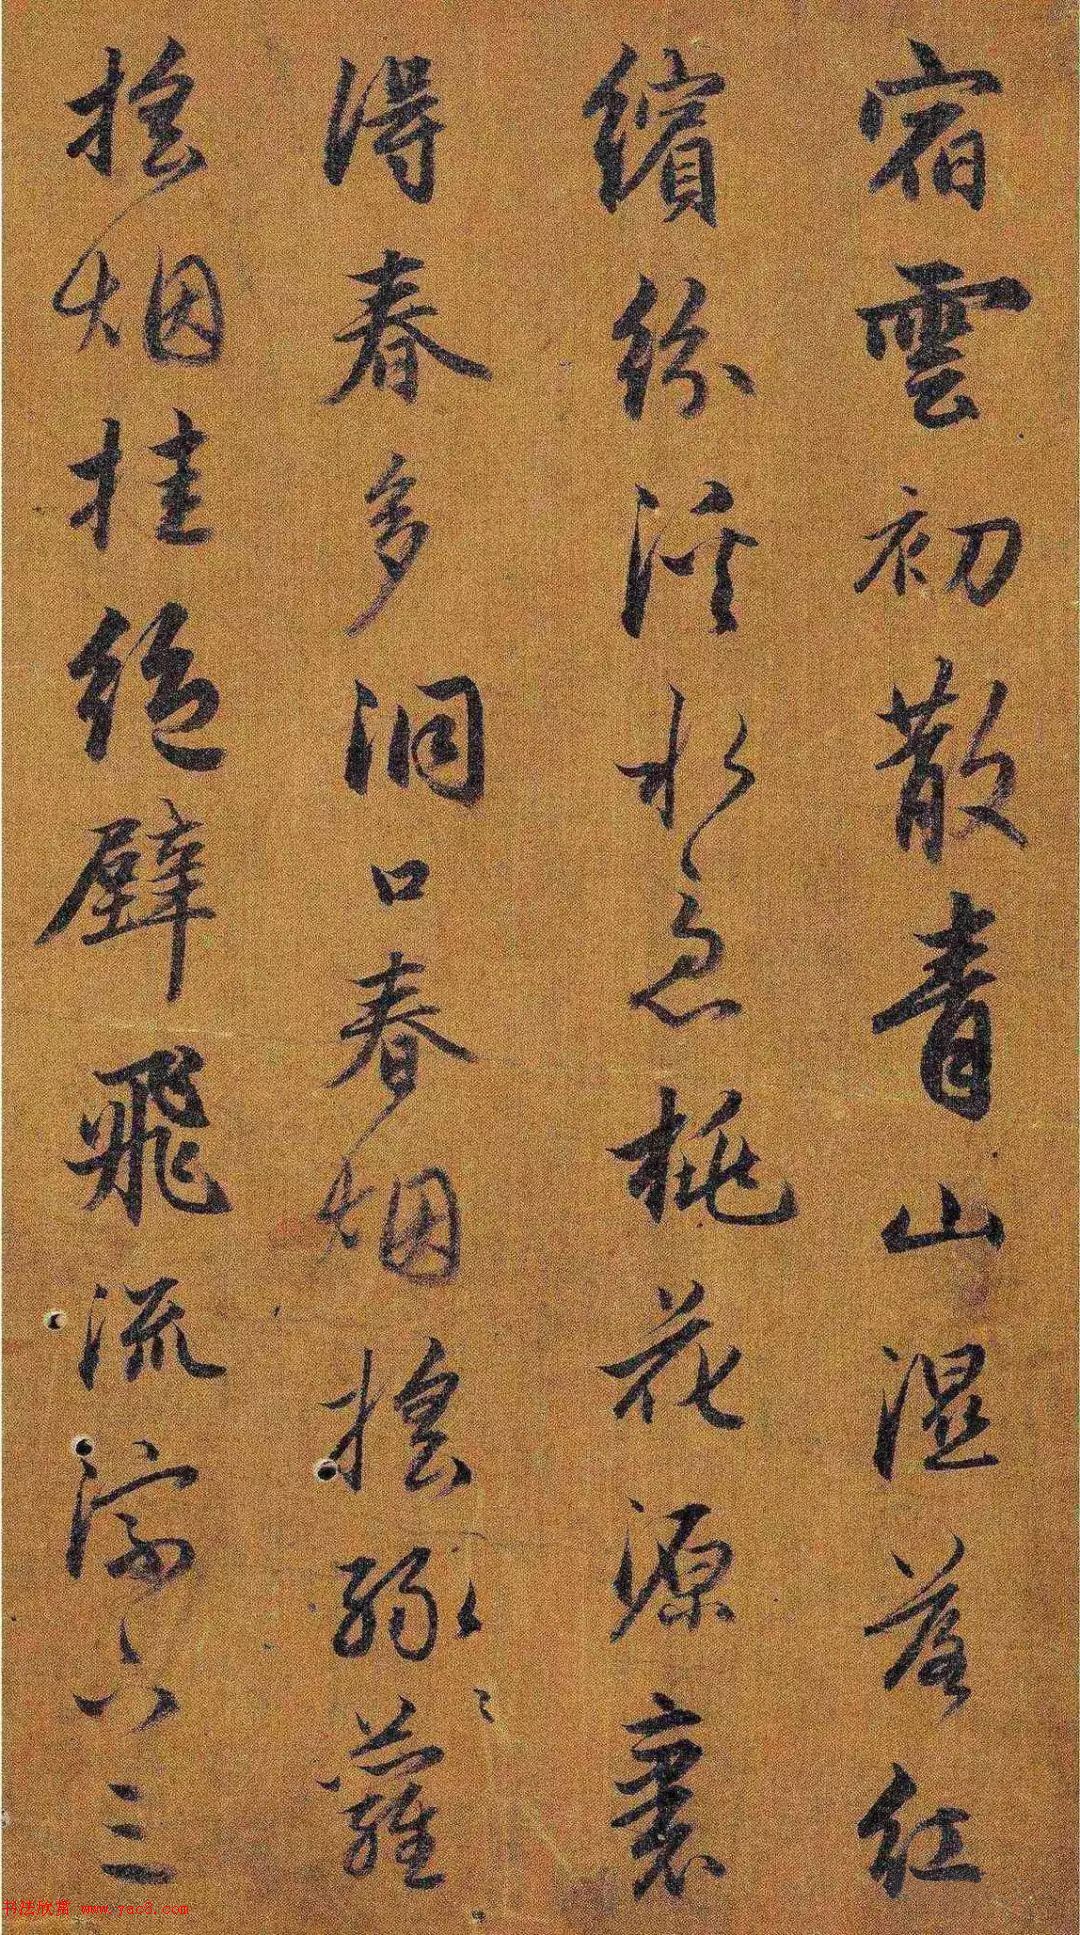 宿雲初散青山濕落紅
繽紛溪水急桃花源裏
得春多洞口春烟搖綠〻蘿〻
搖烟挂絕壁飛流淙下三
书法欣赏 www.yac8.com